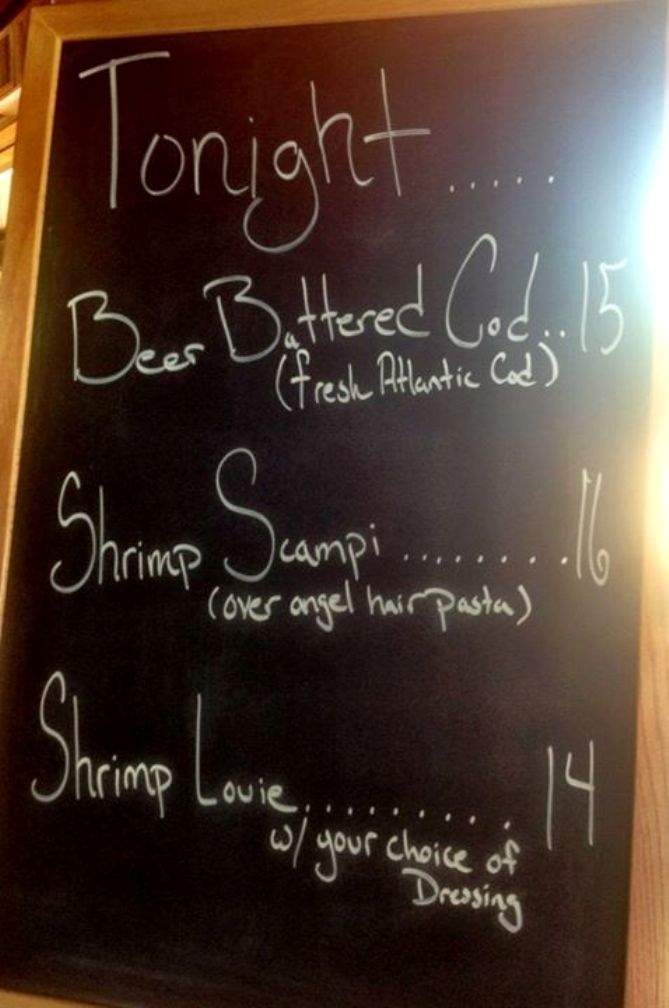 Tonight.....
Beer Battered Cod..15
(fresh Atlantic Cod)
Shrimp Scampi.........16
(over angel hair pasta)
Shrimp Louie.......... 14
w/ your choice of
Dressing